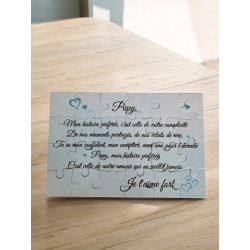 Papy,
Mon histoire préférée, c'est celle de notre complicité
De nos moments partagés, de nos éclats de rire,
Tu es mon confident, mon complice, mon ami pour l'éternité
Papy, mon histoire préférée
C'est celle de notre amour qui ne vieillit jamais.
Je t'aime fort